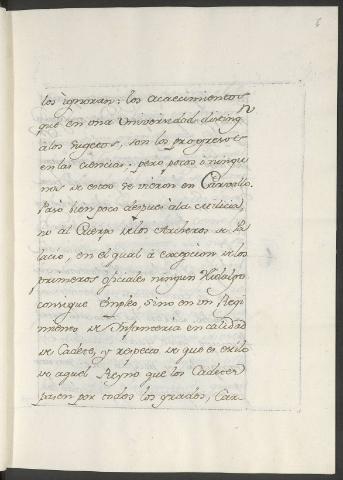 6
los ignoran: los acaecimientos
que en una Universidad disting.n
a los sugetos, son los progresos
en las ciencias; pero pocos ó ningu
nos de estos se vieron en Carvallo.
Pasó bien poco despues á la
no al Cuerpo de los Archeros de Pa
lacio, en el qual á excepcion de los
primeros oficiales ningun Hidalgo
consigue empleo, sino en un Regi
miento de Infanteria en calidad
de Cadete, y respecto de que es estilo
en aquel Reyno que los Cadetes
pasen por todos los grados, Car-